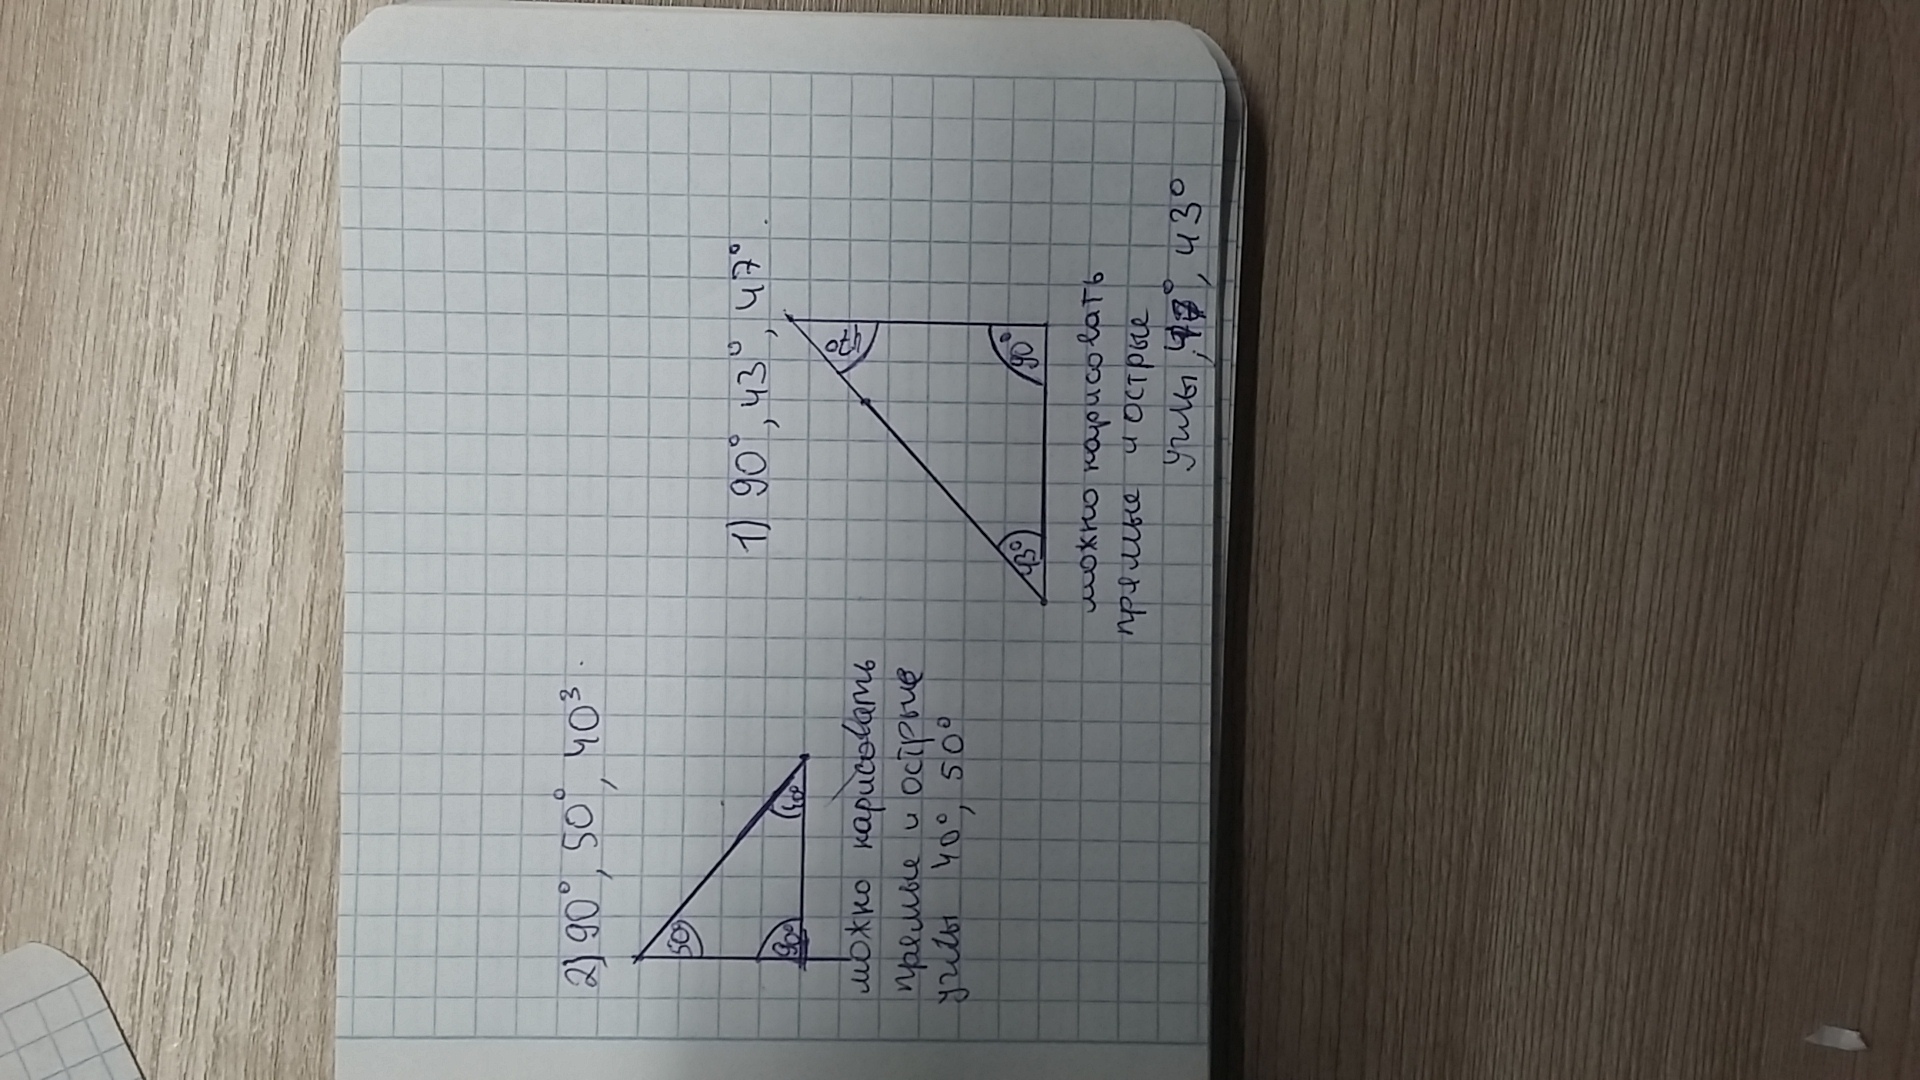 2) 90°, 50°, 40³.
50°
90°
40°
можно нарисовать
прямые и острые
углы 40°, 50°
1) 90°, 43°, 47°.
47°
43°
90°
можно нарисовать
прямые и острые
углы, 47°, 43°